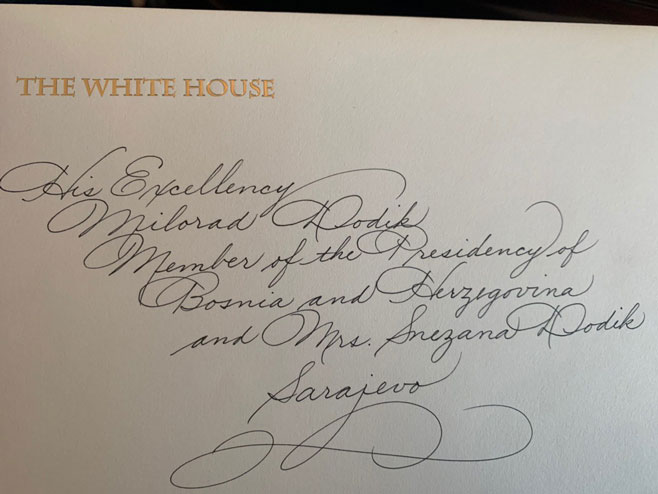 THE WHITE HOUSE
His Excellency
Milorad Dodik
Member of the Presidency of
Bosnia and Herzegovina
and Mrs. Snezana Dodik
Sarajevo